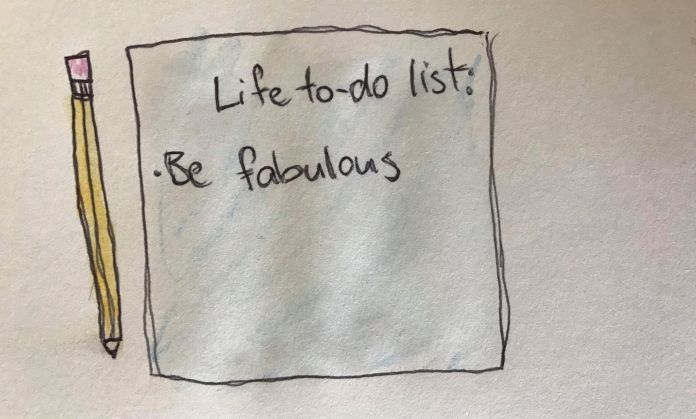 Life to-do list:
·Be fabulous